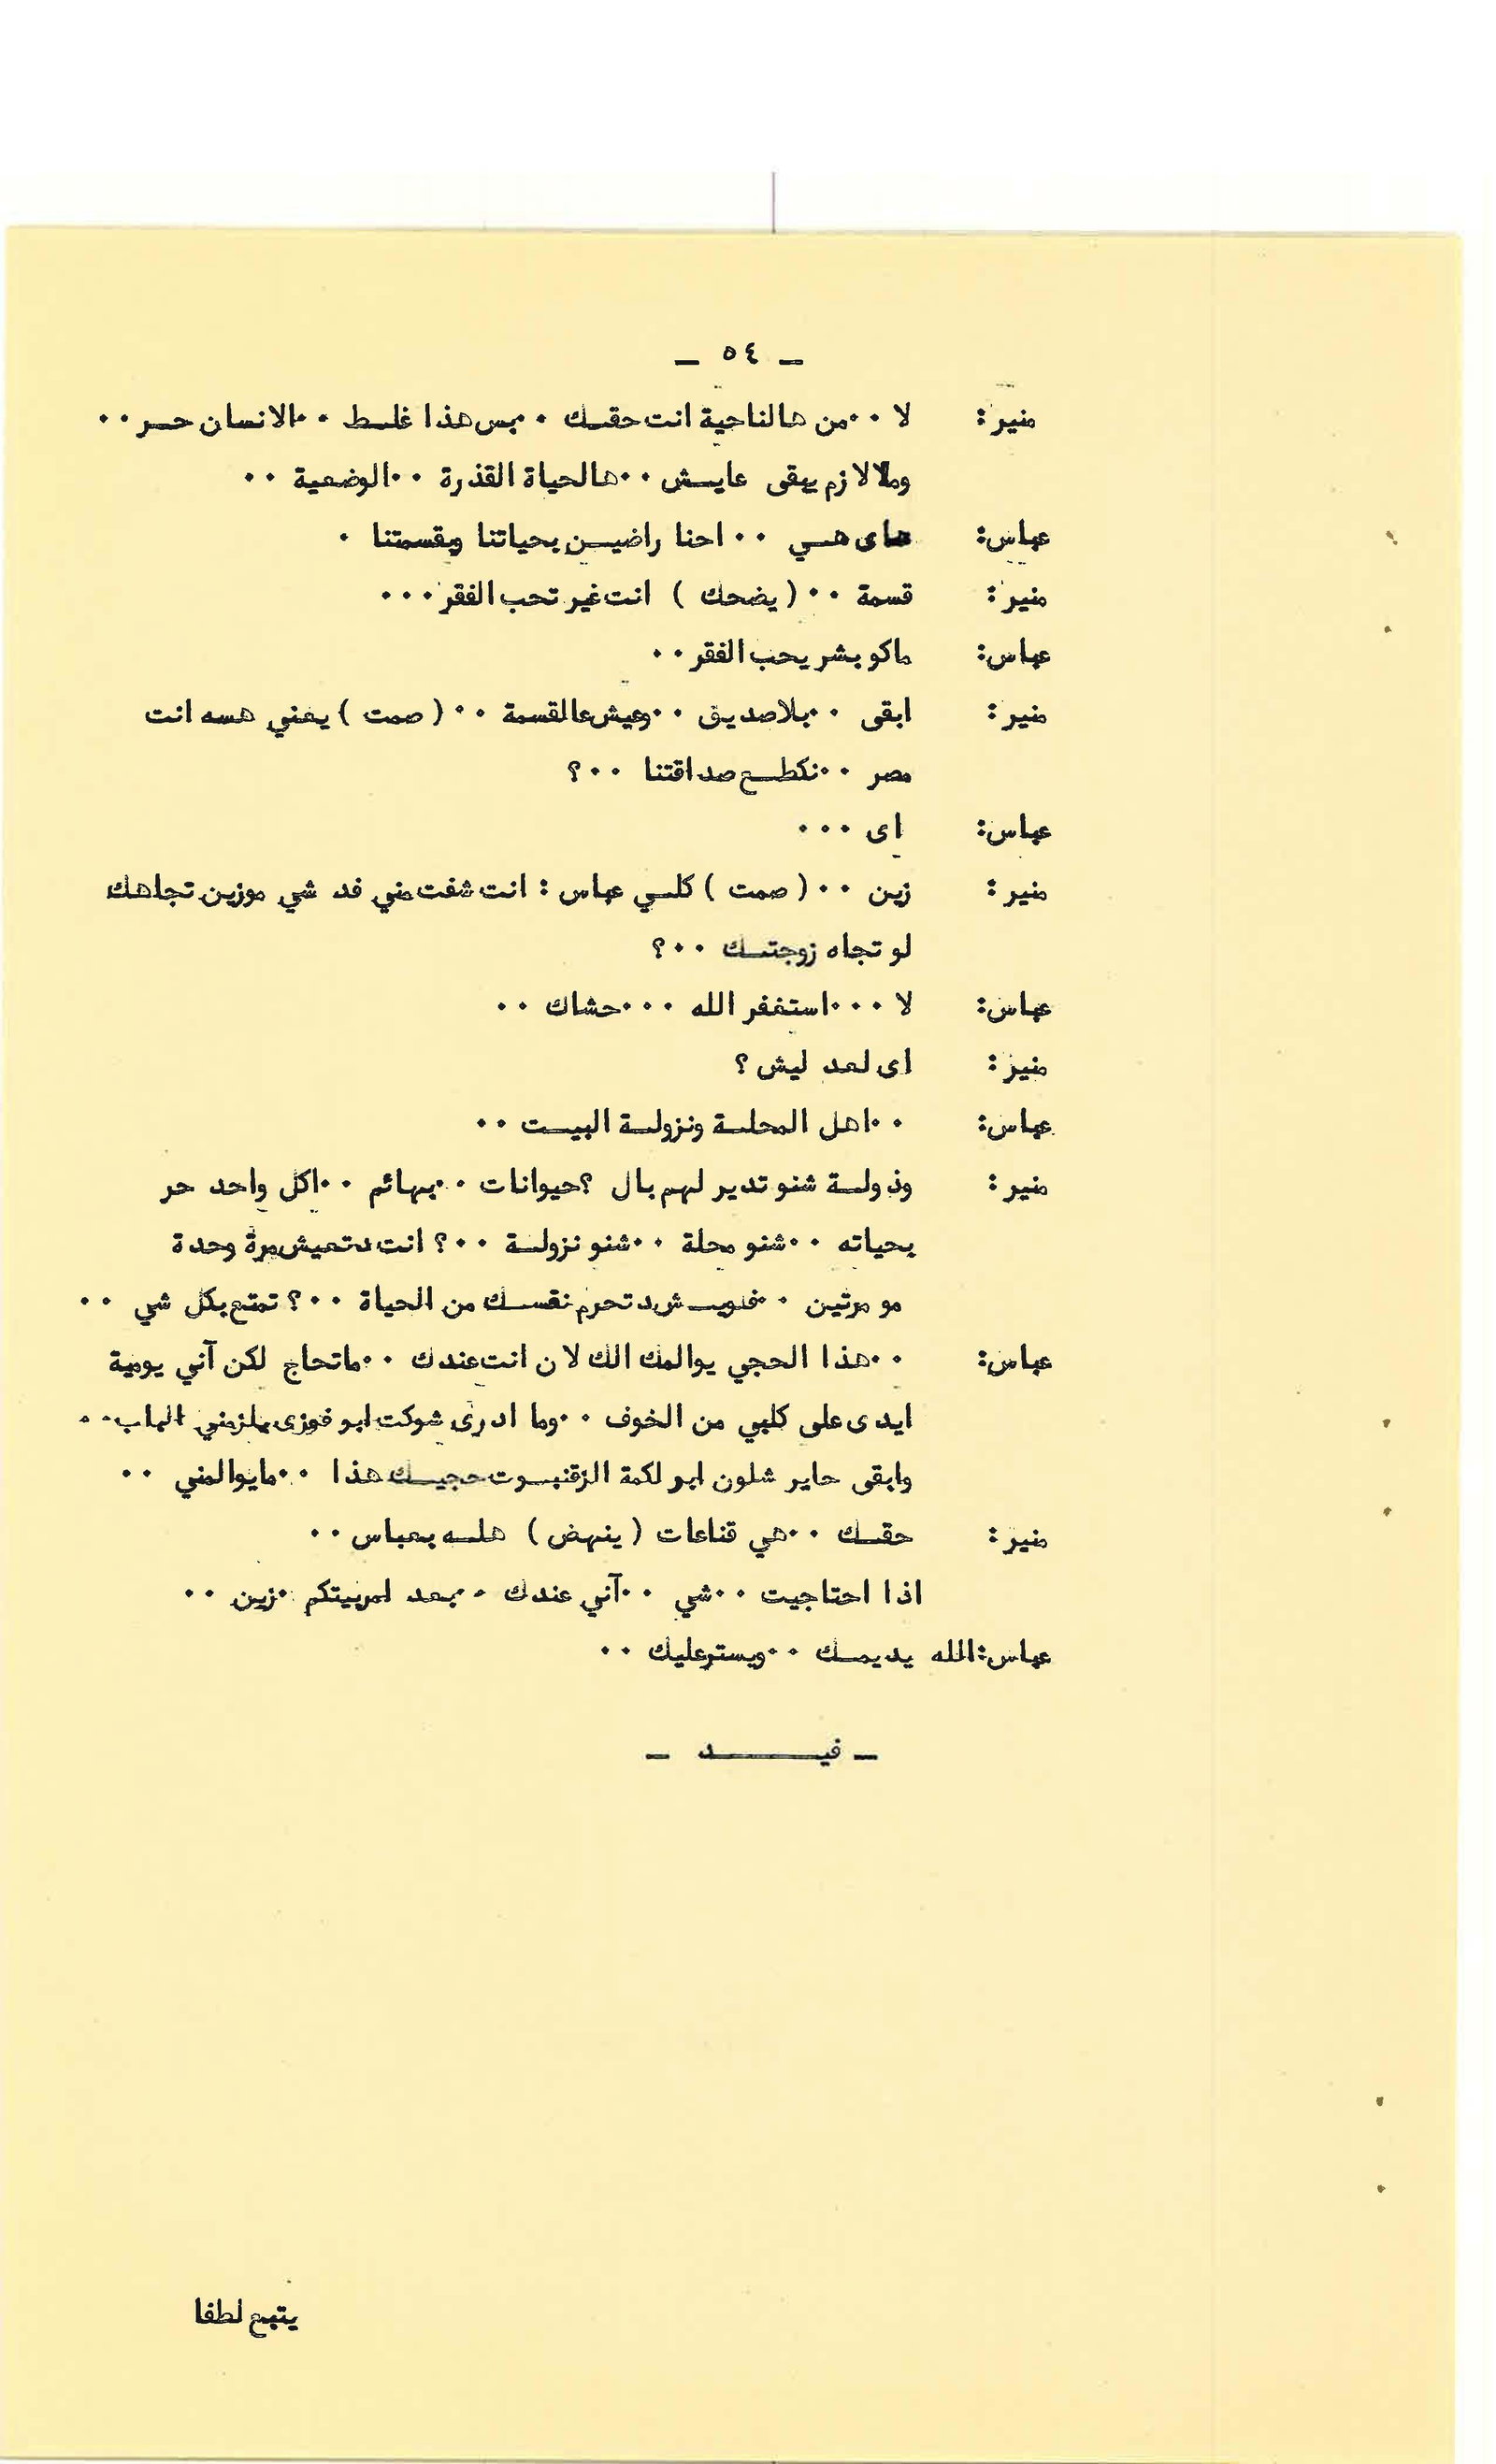 - ٥٤ -
منير : لا ٠٠من هالناحية انت حقك ٠٠بس هذا غلط ٠٠الانسان حر ٠٠
وملا لازم يبقى عايش ٠٠هالحياة القذرة ٠٠الوضعية ٠٠
عباس: هاى هي ٠٠ احنا راضين بحياتنا وبقسمتنا ٠
منير : قسمة ٠٠ ( يضحك ) انت غير تحب الفقر ٠٠٠
عباس: ماكو بشر يحب الفقر ٠٠
منير : ابقى ٠٠بلا صديق ٠٠وعيش عالقسمة ٠٠ ( صمت ) يعني هسه انت
مصر ٠٠نكطع صداقتنا ٠٠؟
عباس: اى ٠٠٠
منير : زين ٠٠ ( صمت ) كلي عباس : انت شفت مني فد شي موزين تجاهك
لو تجاه زوجتك ٠٠؟
عباس: لا ٠٠٠استغفر الله ٠٠٠حشاك ٠٠
منير : اى لعد ليش ؟
عباس: ٠٠اهل المحلة ونزولة البيت ٠٠
منير : وذولة شنو تدير لهم بال ؟حيوانات ٠٠بهائم ٠٠اكل واحد حر
بحياته ٠٠شنو محلة ٠٠شنو نزولة ٠٠؟ انت دتعيش مرة وحدة
مو مرتين ٠ شد تحرم نفسك من الحياة ٠٠؟ تمتع بكل شي ٠٠
عباس: ٠٠هذا الحجي يوالمك الك لان انت عندك ٠٠ماتحاج لكن آني يومية
ايدى على كلبي من الخوف ٠٠وما ادرى شوكت ابو فوزى يلزمني الباب ٠٠
وابقى حاير شلون ابر لكمة الزقنبوت حجيك هذا ٠٠مايوالمني ٠٠
منير : حقك ٠٠هي قناعات ( ينهض ) هله بعباس ٠٠
اذا احتاجيت ٠٠شي ٠٠آني عندك ٠٠بعد لمربيتكم ٠زين ٠٠
عباس:الله يديمك ٠٠ويستر عليك ٠٠
- فيد -
يتبع لطفا